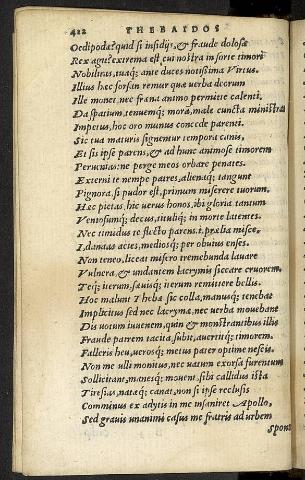 422 THEBAIDOS
Oedipodæ? quid si insidijs, & fraude dolosa
Rex agit? extrema est cui nostra in sorte timori
Nobilitas, tuaq; ante duces notissima Virtus.
Illius hæc forsan remur quæ verba deorum
Ille monet, nec frena animo permitte calenti,
Da spatium, tenuemq; moram, male cuncta ministra
Impetus, hoc oro munus concede parenti.
Sic tua maturis signentur tempora canis,
Et sis ipse parens, & ad hunc animose timorem
Peruenias: ne perge meos orbare penates.
Externi te nempe patres, alienaq; tangunt
Pignora. si pudor est, primum miserere tuorum.
Hæc pietas, hic uerus honos, ibi gloria tantum
Ventosumq; decus, tituliq; in morte latentes.
Nec timidus te flecto parens. i, prælia misce,
I, danaas acies, mediosq; per obuius enses.
Non teneo, liceat misero tremebunda lauare
Vulnera, & undantem lacrymis siccare cruorem.
Teq; iterum, sæuisq; iterum remittere bellis.
Hoc malunt Thebæ sic colla, manusq; tenebat
Implicitus sed nec lacrymæ, nec uerba mouebant
Dis uotum iuuenem, quin & monstrantibus illis
Fraude parem tacita subit, auertitq; timorem.
Falleris heu, uerosq; metus pater optime nescis.
Non me ulli monitus, nec uatum exorsa furentum
Sollicitant, manesq; mouent. sibi callidus ista
Tiresias, natæq; canat, non si ipse reclusis
Comminus ex adytis in me insaniret Apollo,
Sed grauis unanimi casus me fratris ad urbem
Spont